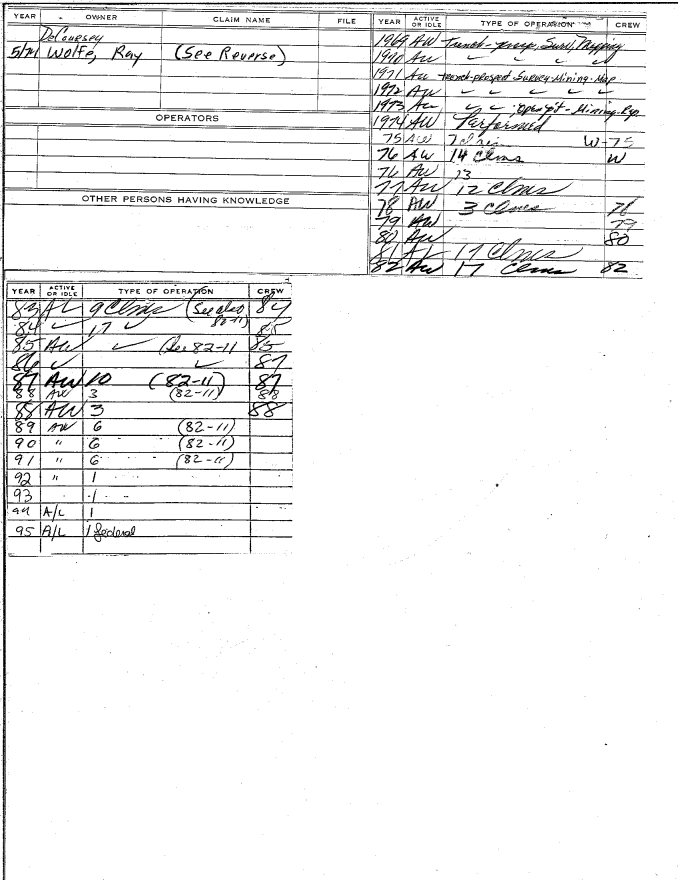 YEAR OWNER CLAIM NAME FILE
DeCoursey
5/74 Wolfe, Ray (See Reverse)
OPERATORS
OTHER PERSONS HAVING KNOWLEDGE
YEAR ACTIVE OR IDLE TYPE OF OPERATION CREW
1969 AW Trench - prosp, Surv, Mapping
1970 AW ✓ ✓ ✓ ✓
1971 AW trench-prospect-Survey-Mining-Map
1972 AW ✓ ✓ ✓ ✓
1973 AW ✓ ✓ ; Open pit - Mining. Exp.
1974 AW Performed
75 AW 7 W-75
76 AW 14 Clms W
76 AW 13
77 AW 12 Clms
78 AW 3 Clmes 78
79 AW 79
80 AW 80
81 AW 17 Clmes
82 AW 17 Clmes 82
YEAR ACTIVE OR IDLE TYPE OF OPERATION CREW
83 AL 9 Clms (See also 82-11) 84
84 ✓ 17 ✓ 85
85 AW ✓ (See 82-11 85
86 ✓ ✓ 87
87 AW 10 (82-11) 87
88 AW 3 (82-11) 88
88 AW 3 88
89 AW 6 (82-11)
90 " 6 (82-11)
91 " 6 (82-11)
92 " 1
93 1
94 A/L 1
95 A/L 1 federal